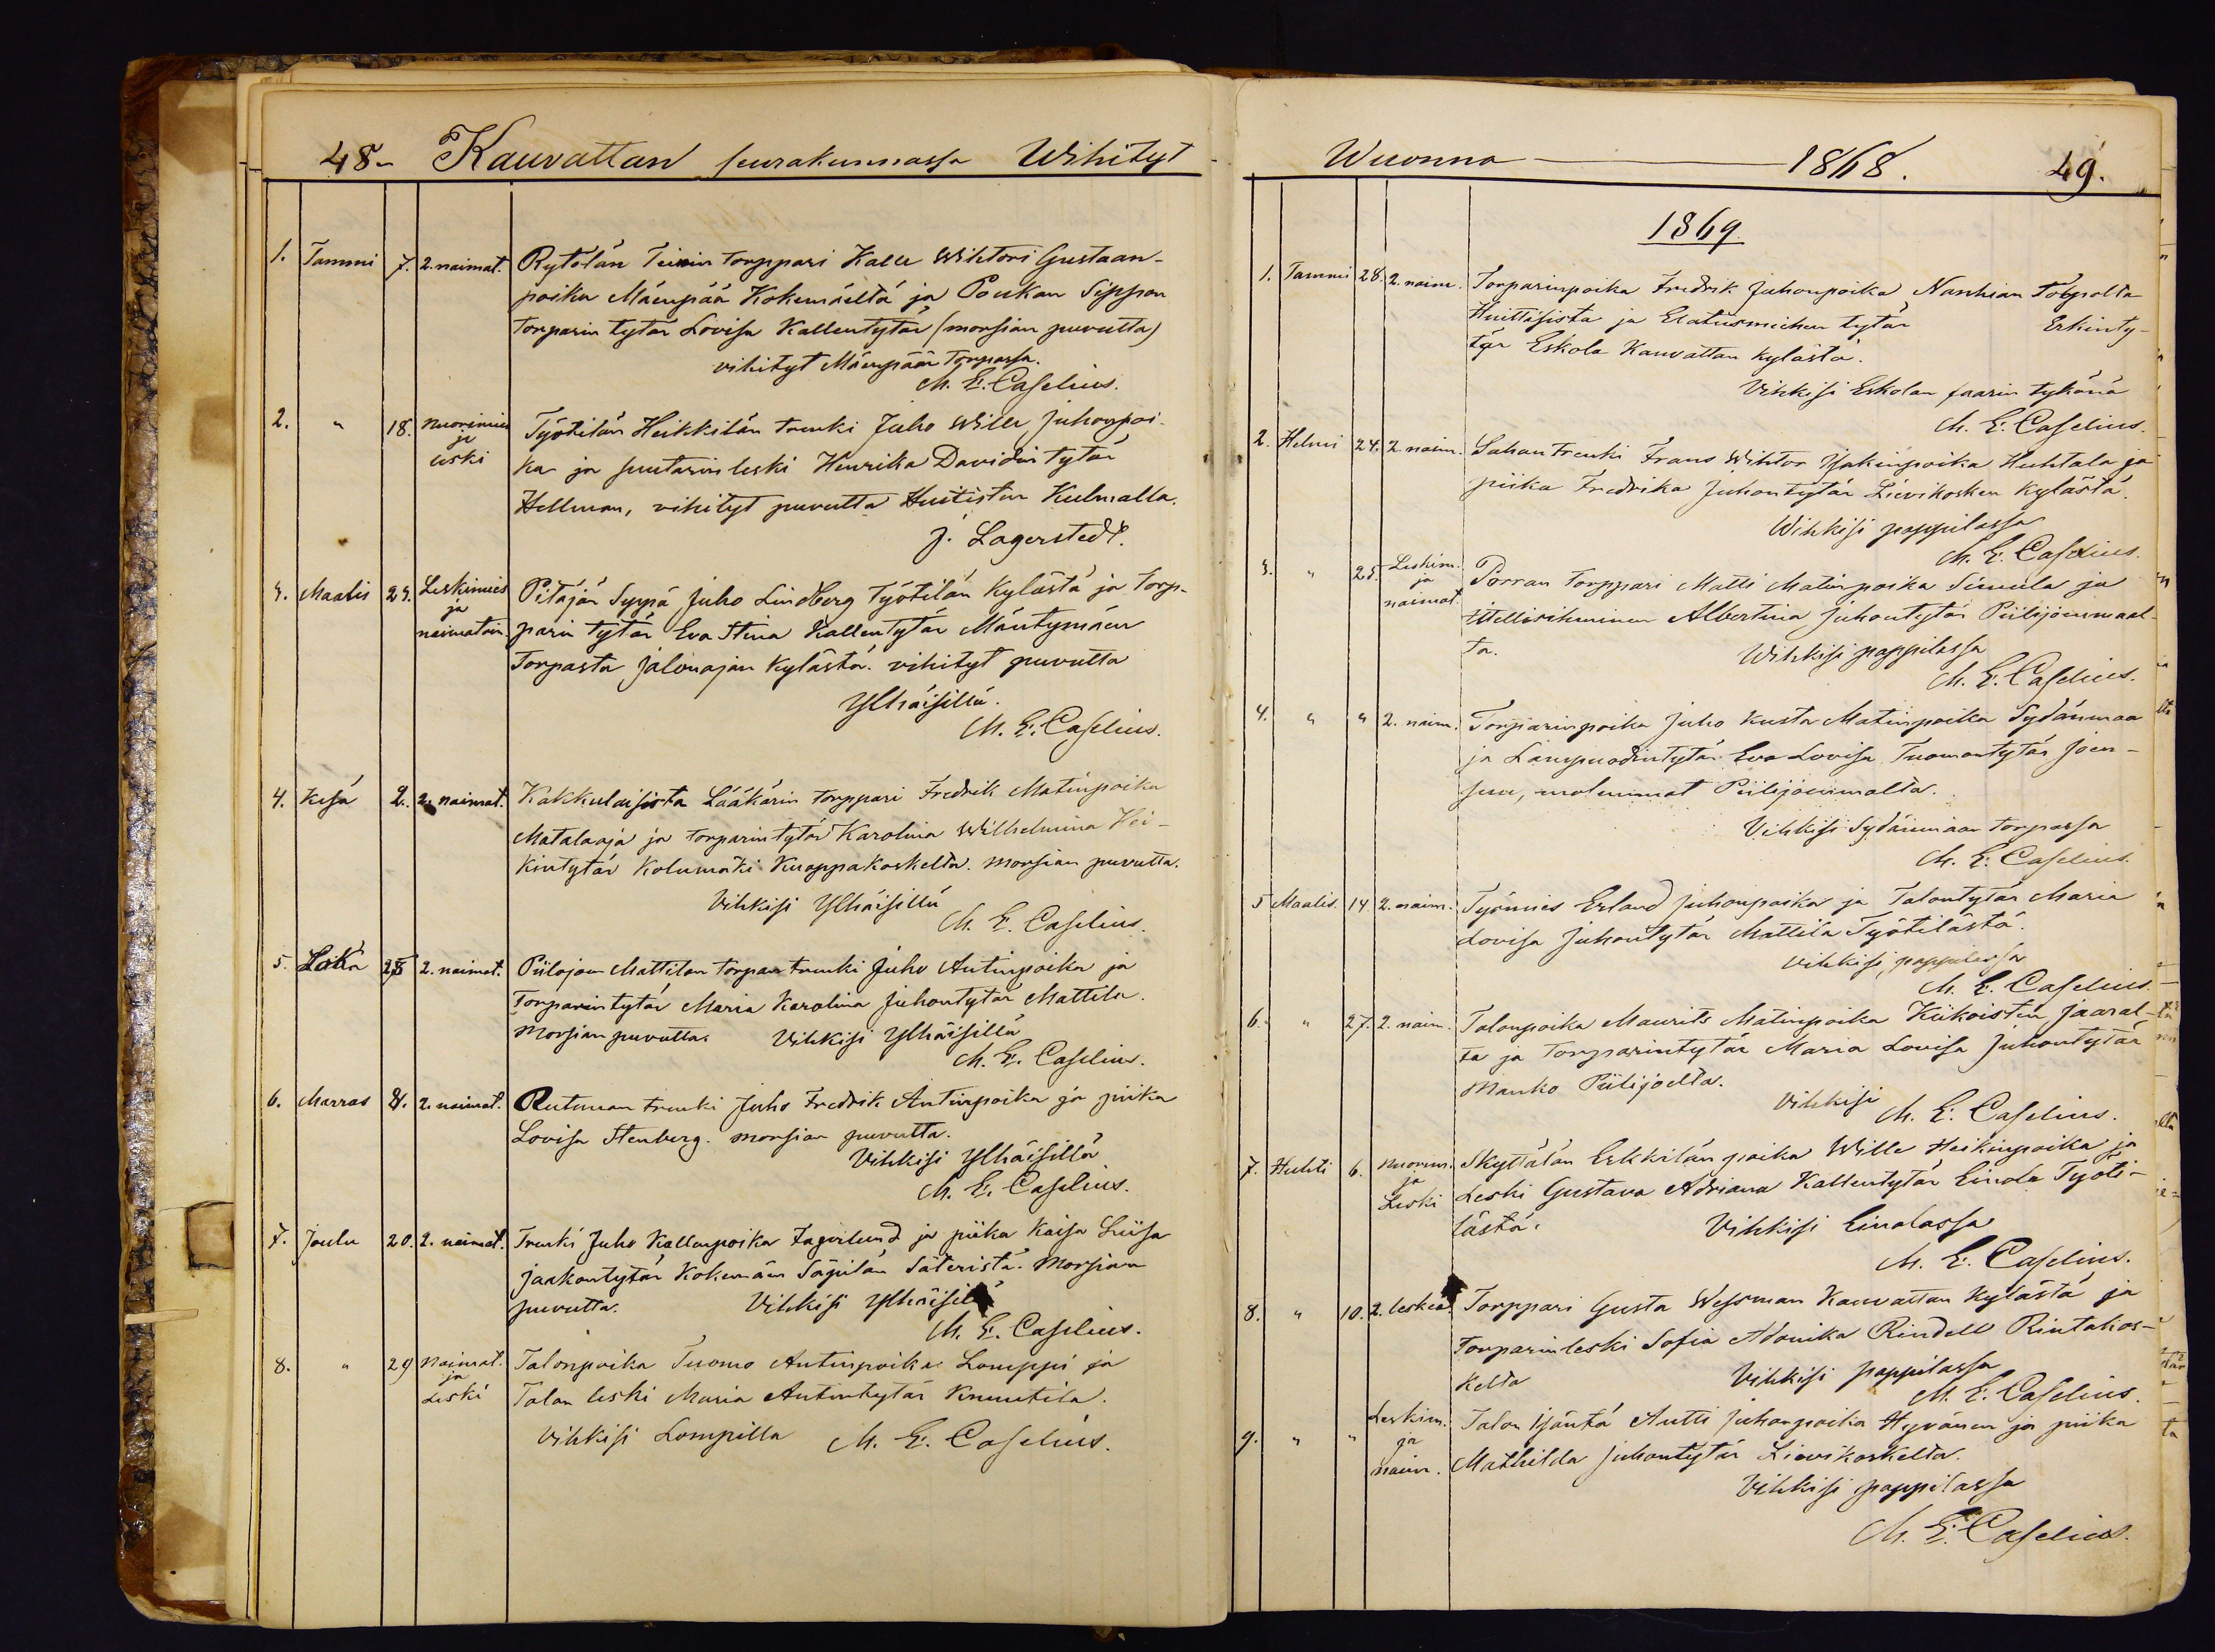 48- Kauvattan seurakunnassa Wihityt
1. Tammi 7. 2. naimat. Rytölän Teinin torppari Kalle Wihtori Gustaan-
poika Mäenpää Kokemäeltä ja Poukan Sippon
torparin tytär Lovisa Kallentytär (morsian puvutta)
vihityt Mäenpään torpassa.
M. E. Caselius.
2. " 18. nuorimies ja leski Työtilän Heikkilän trenki Juho Wille Juhonpoi-
ka ja suutarin leski Henrika Davidin tytär
Hellman, vihityt puvutta Huitistin Kulmalla.
J. Lagerstedt.
3. Maalis 29. Leskimies ja naimatoin. Pitäjän Seppä Juho Lindberg Työtilän kylästä ja torp-
parin tytär Eva Stina Kallentytär Mäntymäen
Torpasta Jalonojan kylästä. vihityt puvutta
Ylhäisillä.
M. E. Caselius.
4. Kesä 2. 2. naimat. Kakkulaisista Lääkärin torppari Fredrik Matinpoika
Mataloaja ja torparin tytär Karolina Wilhelmina Hei-
kintytär Kolumäki Kuoppakoskelta. morsian puvutta.
Vihkisi Ylhäisillä
M. E. Caselius.
5. Loka 25 2. naimat. Piilojoen Mattilan torpan trenki Juho Antinpoika ja
Torparin tytär Maria Karolina Juhontytär Mattila.
Morsian puvutta. Vihkisi Ylhäisillä
M. E. Caselius.
6. Marras 8. 2. naimat. Rutuman trenki Juho Fredrik Antinpoika ja piika
Lovisa Stenberg. morsian puvutta.
Vihkisi Ylhäisillä
M. E. Caselius.
7. Joulu 20. 2. naimat. Trenki Juho Kallenpoika Fagerlund ja piika Kaisa Liisa
Jaakontytär Kokemäen Säpilän Säteristä. Morsian
puvutta. Vihkisi Ylhäisillä
M. E. Caselius.
8. " 29 Naimat. ja Leski Talonpoika Tuomo Antinpoika Lomppi ja
Talon leski Maria Antintytär Knuutila.
Vihkisi Lompilla M. E. Caselius.
Wuonna 1868. 49.
1869.
1. Tammi 28. 2. naim. Torparinpoika Fredrik Juhonpoika Nanhian Torpolta
Huittisista ja Elatusmiehen tytär Erkinty-
tär Eskola Kauvattan kylästä.
Vihkisi Eskolan faarin tykönä
M. E. Caselius.
2. Helmi 24. 2. naim. Sahan trenki Frans Wihtor Isakinpoika Huhtala ja
piika Fredrika Juhontytär Lievikosken kylästä.
Wihkisi pappilassa
M. E. Caselius.
3. " 25. Leskim. ja naimat. Porran torppari Matti Matinpoika Simula ja
itellisihminen Albertina Juhontytär Piilijoenmaal-
ta. Wihkisi pappilassa
M. E. Caselius.
4. " " 2. naim. Torparinpoika Juho Kusta Matinpoika Sydänmaa
ja Lampuodintytär Eva Lovisa Tuomontytär Joen-
suu, molemmat Piilijoenmalta.
Vihkisi Sydänmaan torpassa
M. E. Caselius.
5 Maalis. 14 2. naim. Työmies Erland Juhonpoika ja Talontytär Maria
Lovisa Juhontytär Mattila Työtilästä.
Vihkisi pappilassa
M. E. Caselius.
6. " 27. 2. naim. Talonpoika Maurits Matinpoika Kiikoistin Jaaral-
ta ja Torparintytär Maria Lovisa Juhontytär
Manko Piilijoelta.
Vihkisi
M. E. Caselius.
7. Huhti 6. Nuorim. ja Leski Skyttälän Erkkilän poika Wille Heikinpoika ja
Leski Gustava Adriana Kallentytär Einola Työti-
lästä. Vihkisi Einolassa
M. E. Caselius.
8. " 10. 2. leskiä. Torppari Gusta Wessman Kauvattan kylästä ja
Torparinleski Sofia Adonika Rindell Rintakos-
kelta Vihkisi pappilassa
M. E. Caselius.
9. " " Leskim. ja naim. Talon Isäntä Antti Juhonpoika Hyvönen ja piika
Mathilda Juhontytär Lievikoskelta.
Vihkisi pappilassa
M. E. Caselius.